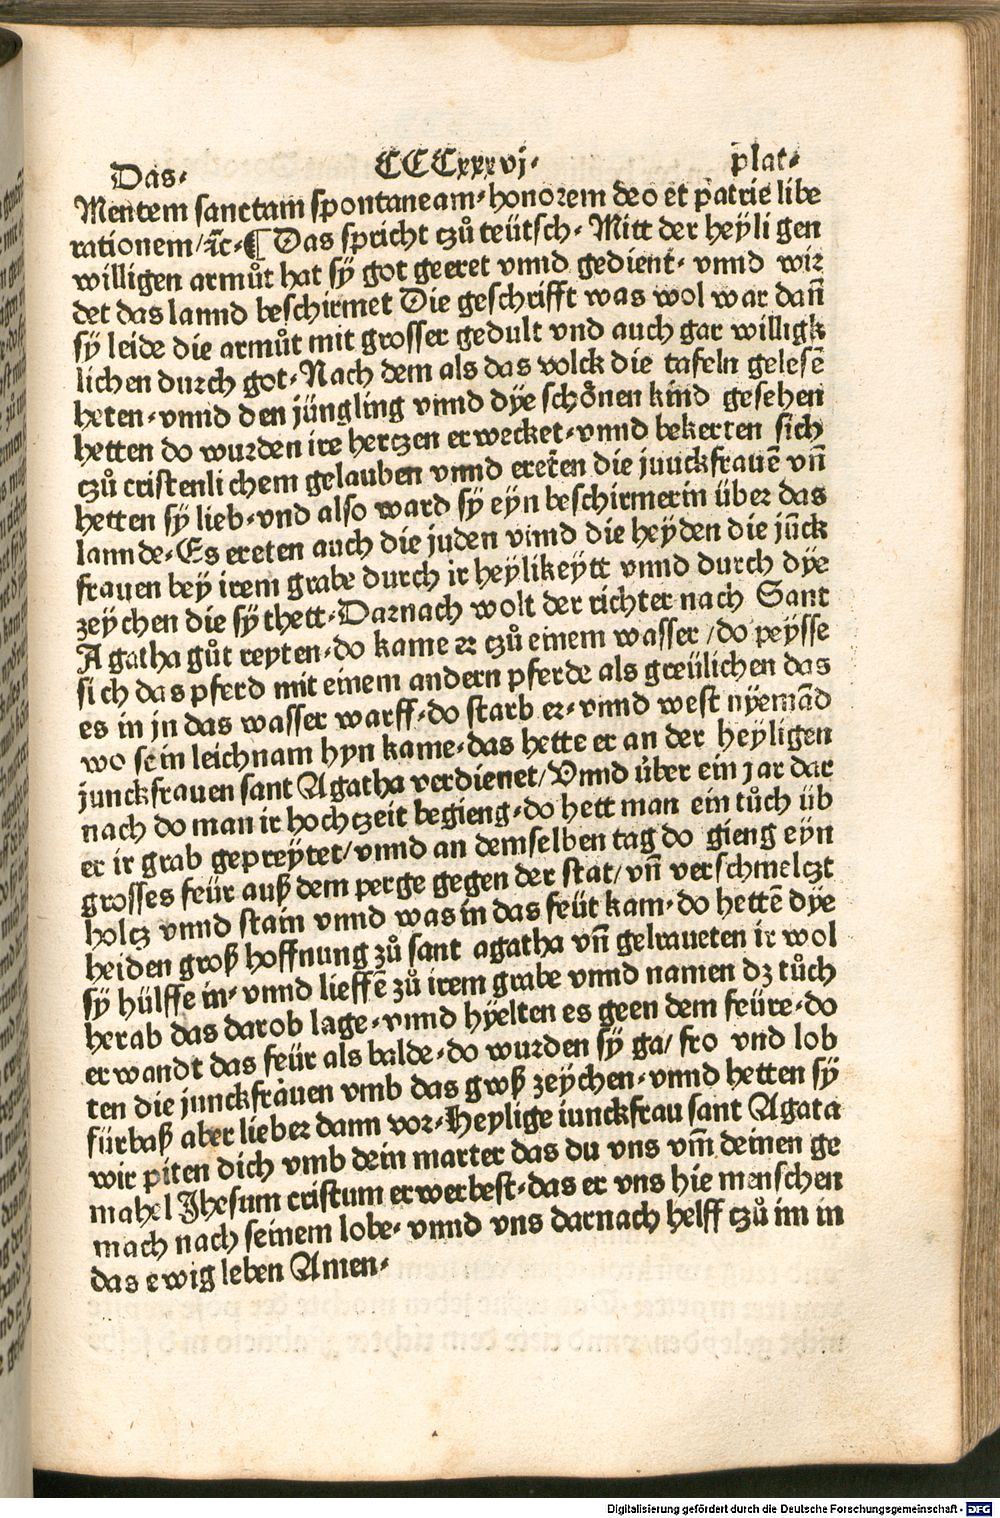 Das· CCCxxxvj· plat·
Mentem sanctam spontaneam·honorem deo et patrie libe
rationem/ꝛc·¶ Das spricht czů teütsch· Mitt der heyligen
willigen armůt hat sÿ got geeret vnnd gedient· vnnd wir
det das lannd beschirmet Die geschrifft was wol war dañ
sÿ leide die armůt mit grosser gedult vnd auch gar willigk
lichen durch got·Nach dem als das volck die tafeln gelesē
heten·vnnd den jüngling vnnd dÿe schönen kind gesehen
hetten do wurden ire hertzen erwecket·vnnd bekerten sich
czů cristenlichem gelauben vnnd ereten die junckfrauē vñ
hetten sÿ lieb·vnd also ward sÿ eÿn beschirmerin über das
lannde·Es ereten auch die juden vnnd die heÿden die jūck
frauen beÿ irem grabe durch ir heÿlikeÿtt vnnd durch dÿe
zeÿchen die sÿ thett·Darnach wolt der richter nach Sant
Agatha gůt reyten·do kame er czů einem wasser/do peÿsse
sich das pferd mit einem andern pferde als greülichen das
es in jn das wasser warff·do starb er·vnnd west nÿemād
wo sein leichnam hyn kame·das hette er an der heÿligen
junckfrauen sant Agatha verdienet/Vnnd über ein jar dar
nach do man ir hochtzeit begieng·do hett man ein tůch üb
er ir grab gepreÿtet/vnnd an demselben tag do gieng eÿn
grosses feür auß dem perge gegen der stat/vñ verschmelczt
holcz vnnd stain vnnd was in das feüt kam·do hettē dÿe
heiden groß hoffnung zů sant agatha vñ getraueten ir wol
sÿ hülffe in·vnnd lieffē zů irem grabe vnnd namen dz tůch
herab das darob lage·vnnd hÿelten es geen dem feüre·do
erwandt das feür als balde·do wurden sÿ ga/ fro vnd lob
ten die junckfrauen vmb das gwß zeÿchen·vnnd hetten sÿ
fürbaß aber lieber dann vor·Heylige iunckfrau sant Agata
wir piten dich vmb dein marter das du vns vm̄ deinen ge
mahel Jhesum cristum erwerbest·das er vns hie menschen
mach nach seinem lobe· vnnd vns darnach helff czů im in
das ewig leben Amen·
Digitalisierung gefördert durch die Deutsche Forschungsgemeinschaft - DFG